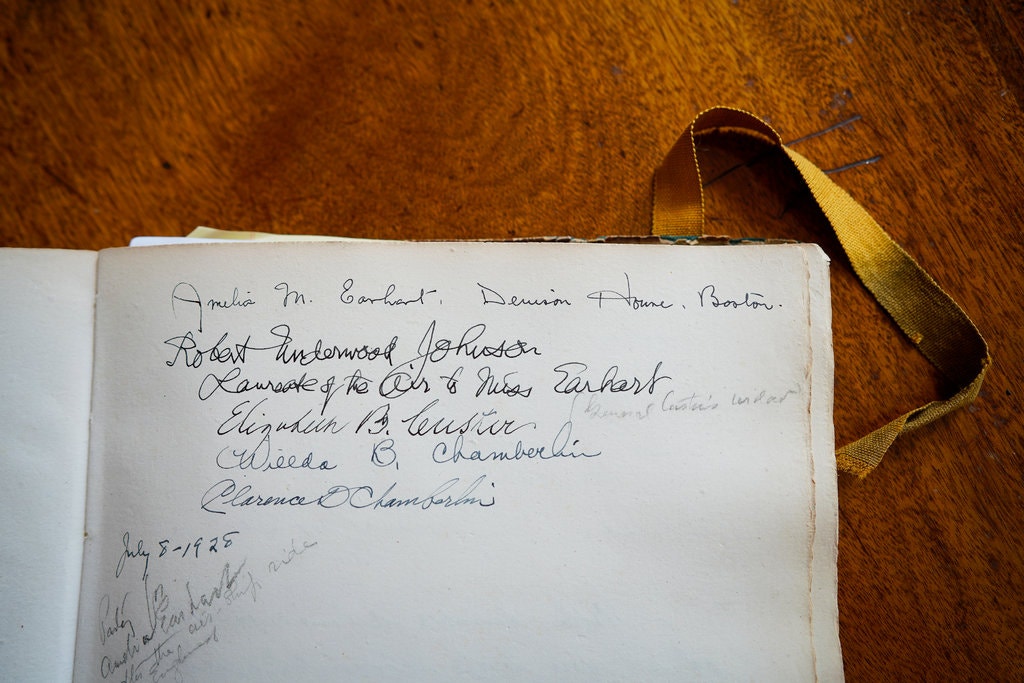 Amelia M. Earhart, Denison House, Boston.
Robert Underwood Johnson
Laureate of the Air to Miss Earhart
Elizabeth B. Custer
(General Custer's widow
Willda B. Chamberlin
Clarence D Chamberlin
July 8-1928
Party for
Amelia Earhart
after the air ship ride
England